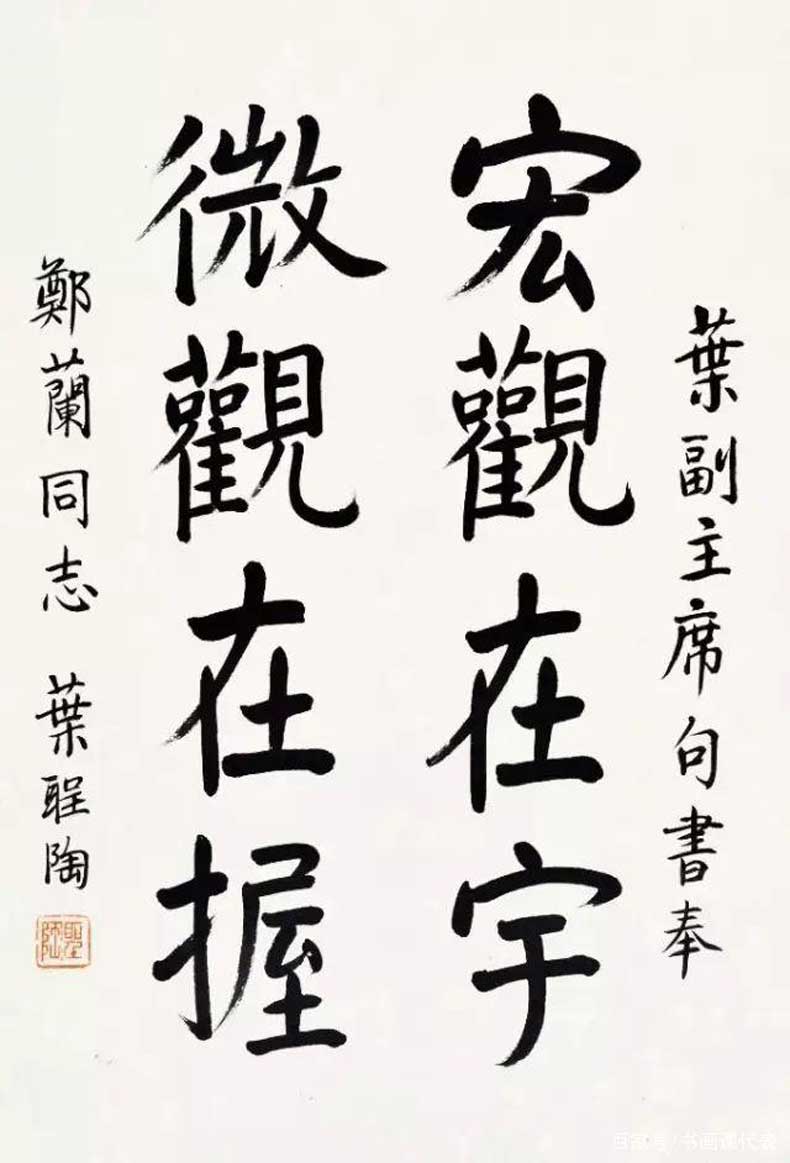 葉副主席句書奉
宏觀在宇
微觀在握
鄭蘭同志 葉聖陶
聖陶
百家号/书画课代表